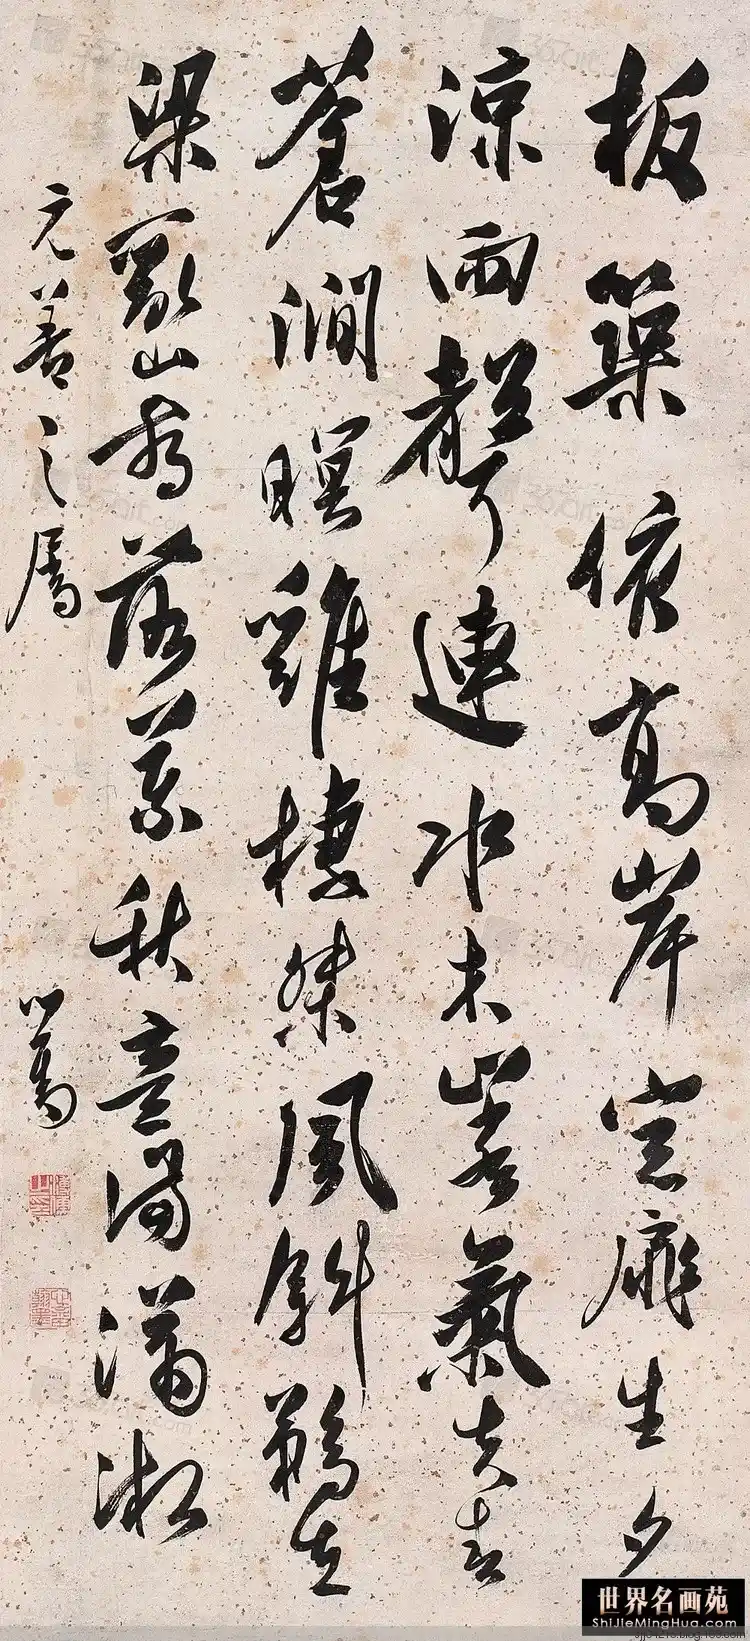 板築依高岸空扉生夕
涼雨聲連水木嵐氣夾青
蒼澗暝雞棲桀風斜鵜立
梁亂山看落葉秋意滿瀟湘
元善之屬
心畬
世界名画苑
ShiJieMingHua.com